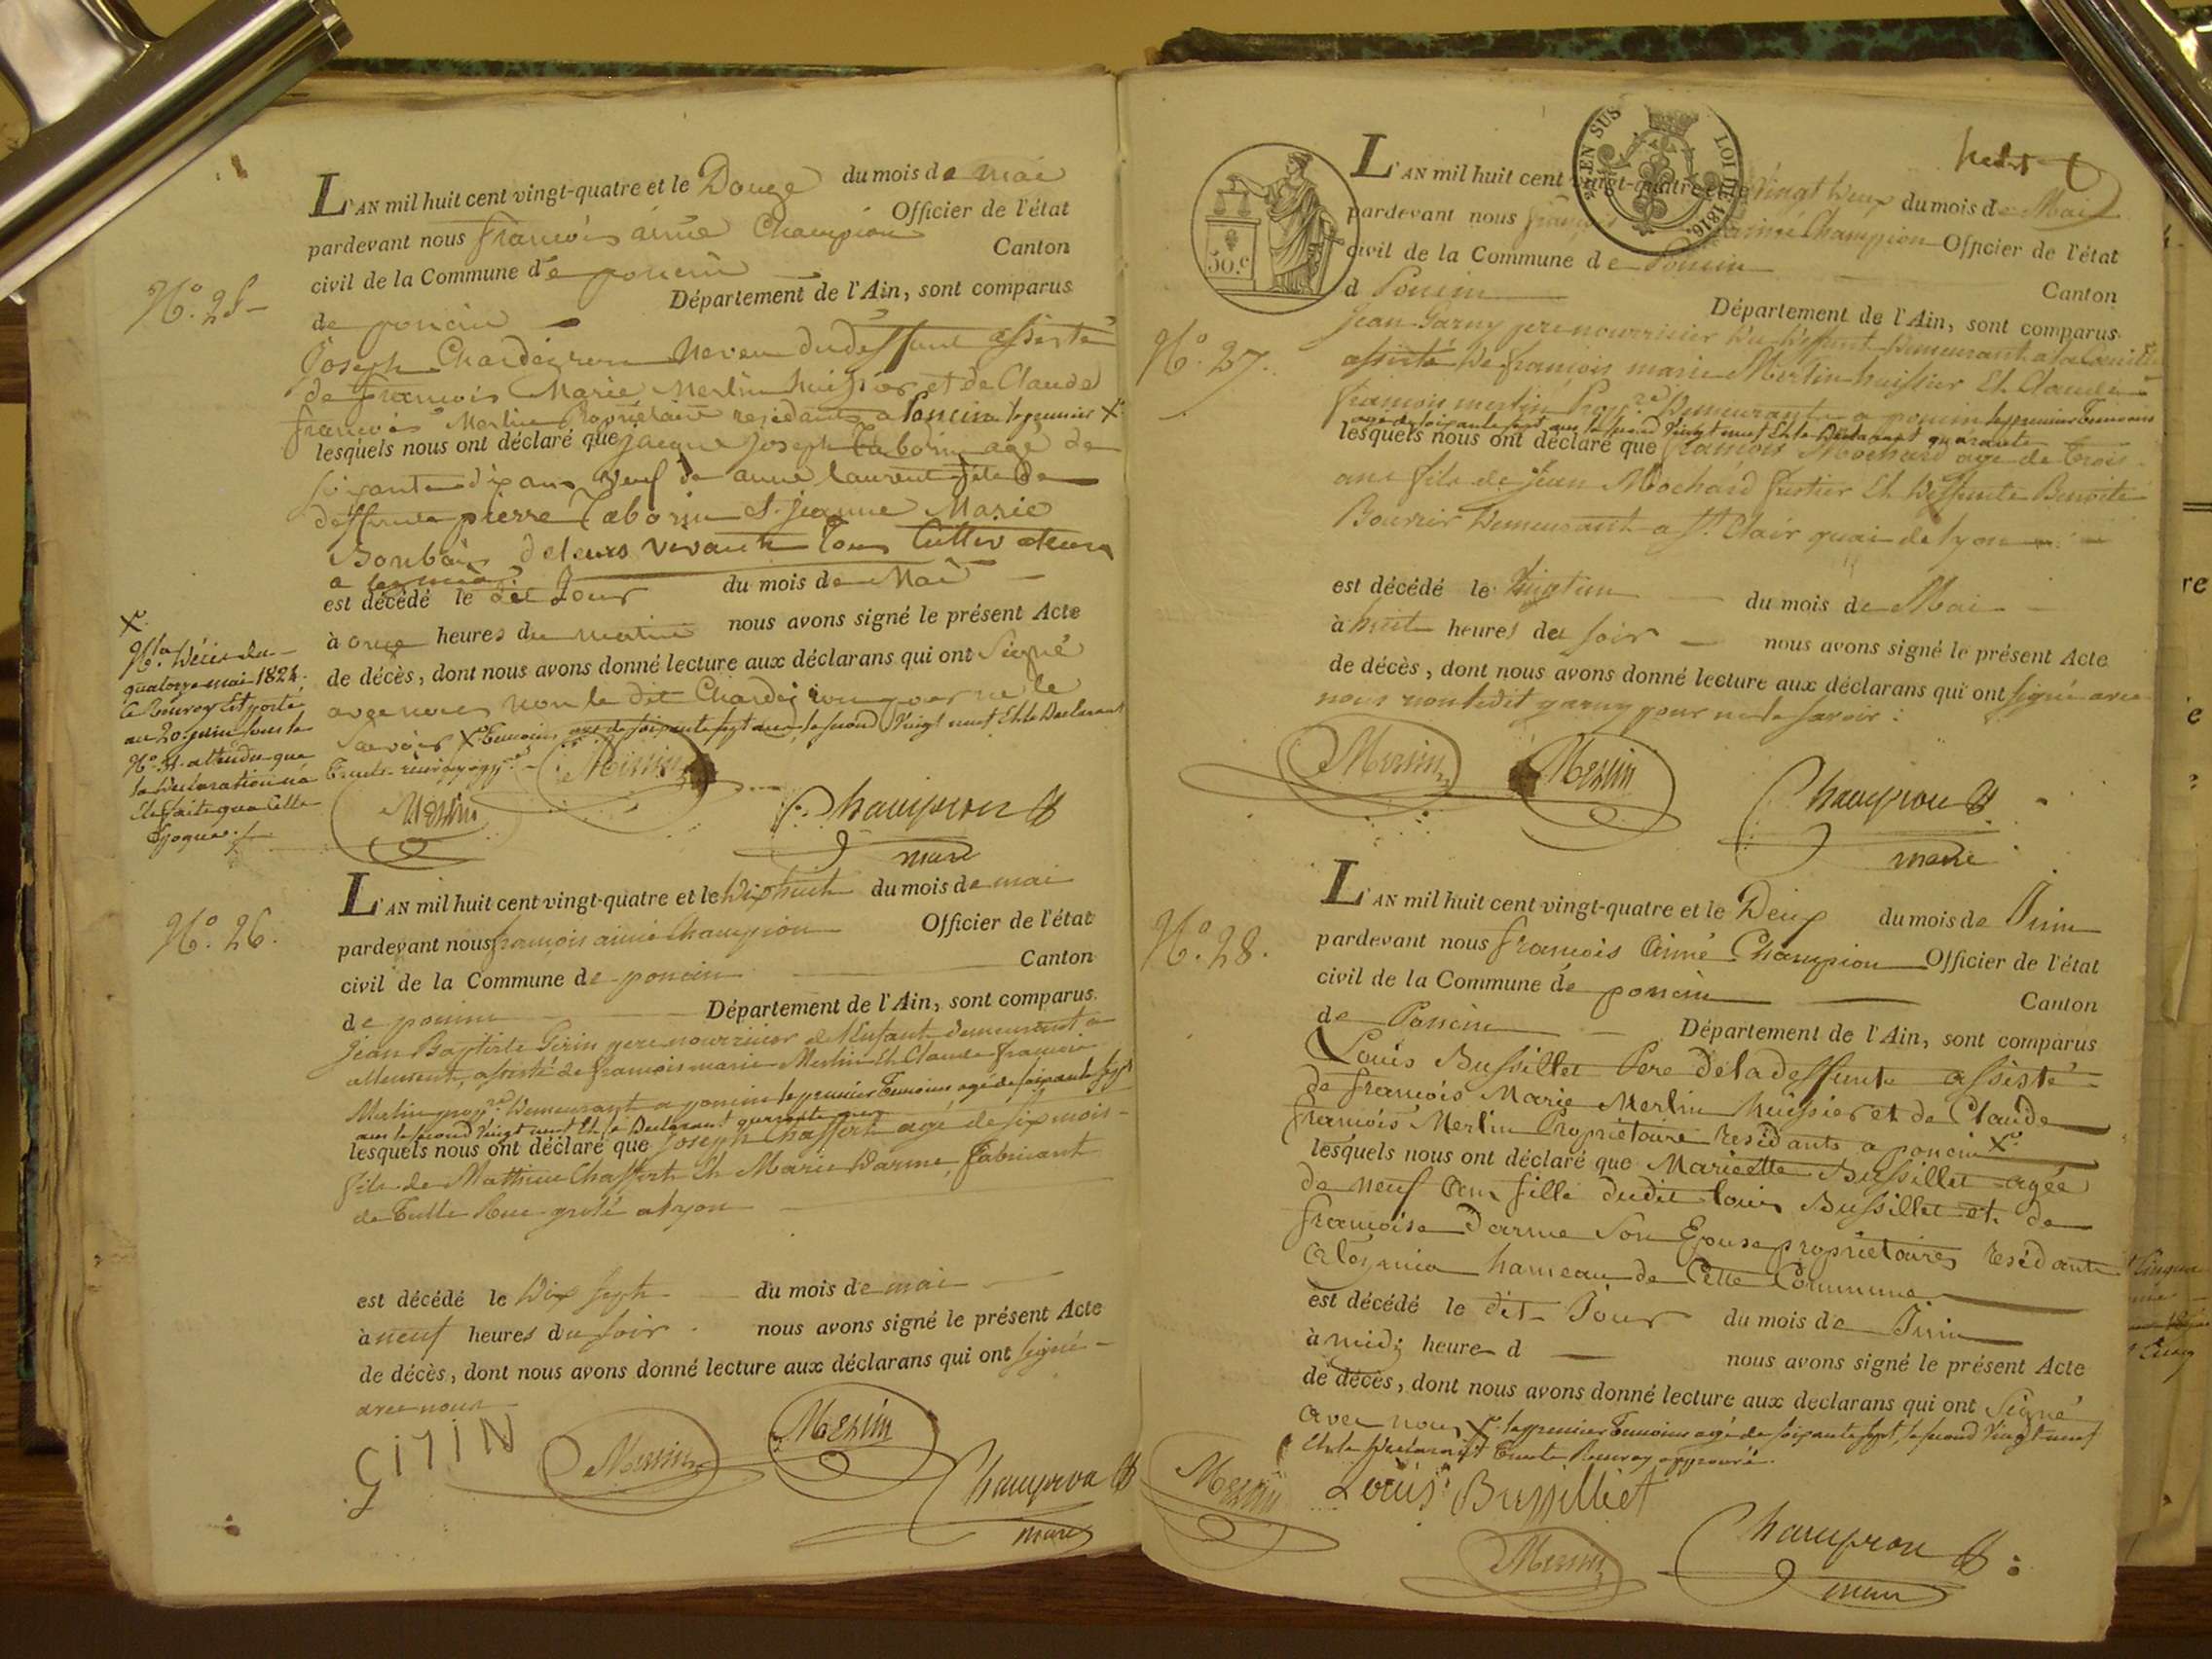 L'AN mil huit cent vingt-quatre et le Douze du mois de mai
pardevant nous francois aimé Champion Officier de l'état
civil de la Commune de poncin Canton
de poncin Département de l'Ain, sont comparus
N.º 25
Joseph Chardeyron Neveu du deffunt assisté
de francois Marie Merlin huissier et de Claude
francois Merlin Propriétaire residants a Poncin le premier X
lesquels nous ont déclaré que jacque Joseph agé de
soixante dix ans veuf de anne laurent fils de
deffunts pierre et jeanne Marie
de leurs vivants tous Cultivateurs
a
est décédé le dit Jour du mois de Mai
à onze heures du matin nous avons signé le présent Acte
de décès, dont nous avons donné lecture aux déclarans qui ont Signé
avec nous non le dit Chardeyron pour ne le
Savoir X temoin agé de soixante sept ans le second Vingt neuf Et le Declarant
trente renvoy
X
N.ta Décès du
quatorze mai 1824
Ce Renvoy Est porté
au 20 juin sous le
N.º 31 attendu que
la Declaration n'a
Eté faite qu'a Cette
Epoque
Merlin
Merlin
Champion
maire
L'AN mil huit cent vingt-quatre et le Dix huit du mois de mai
N.º 26.
pardevant nous françois aimé Champion Officier de l'état
civil de la Commune de poncin Canton
de poncin Département de l'Ain, sont comparus
Jean Baptiste Girin pere nourricier de l'Enfant demeurant a
allement, assisté de francois marie Merlin Et Claude francois
Merlin prop.re Demeurant a poncin le premier Temoins agé de soixante sept
ans le second Vingt neuf Et le Declarant quarante
lesquels nous ont déclaré que Joseph Chaffort agé de six mois
fils de Mathieu Chaffort Et Marie Darme, fabricant
de Tulle Rue a Lyon
est décédé le Dix sept du mois de mai
à neuf heures du soir nous avons signé le présent Acte
de décès, dont nous avons donné lecture aux déclarans qui ont signé
avec nous
Girin
Merlin
Merlin
Champion
maire
50.c
EN SUS
LOI DE 1816.
L'AN mil huit cent vingt-quatre et le Vingt Deux du mois de Mai
pardevant nous françois aimé Champion Officier de l'état
civil de la Commune de Poncin Canton
d Poncin Département de l'Ain, sont comparus
N.º 27.
Jean Garny pere nourricier Du Deffunt Demeurant a
assisté De françois marie Merlin huissier Et Claude
françois merlin Prop.re Demeurants a poncin le premier Temoins
agé de soixante sept ans le second Vingt neuf Et le Declarant quarante
lesquels nous ont déclaré que françois Mochard age de trois
ans fils de Jean Mochard Et Deffunte Benoite
Bourrir Demeurant a St Clair quai de lyon
est décédé le Vingt un du mois de Mai
à huit heures du soir nous avons signé le présent Acte
de décès, dont nous avons donné lecture aux déclarans qui ont signé avec
nous non ledit garny pour ne le savoir
Merlin
Merlin
Champion
maire
L'AN mil huit cent vingt-quatre et le Deux du mois de Juin
N.º 28.
pardevant nous francois Aimé Champion Officier de l'état
civil de la Commune de poncin Canton
de Poncin Département de l'Ain, sont comparus
Louis Bussillet Pere de la deffunte assisté
de francois Marie Merlin huissier et de Claude
francois Merlin Propriétaire residants a poncin X
lesquels nous ont déclaré que Mariette Bussillet agée
de neuf ans fille dudit louis Bussillet et de
francoise Darme Son Epouse propriétaires residants
a hameau de Cette Commune
est décédé le dit Jour du mois de Juin
à midi heure d nous avons signé le présent Acte
de décès, dont nous avons donné lecture aux declarans qui ont Signé
Avec nous X le premier Temoins agé de soixante sept, le second Vingt neuf
Et le Declarant Trente Renvoy approuvé.
Merlin
Louis Bussilliet
Merlin
Champion
maire